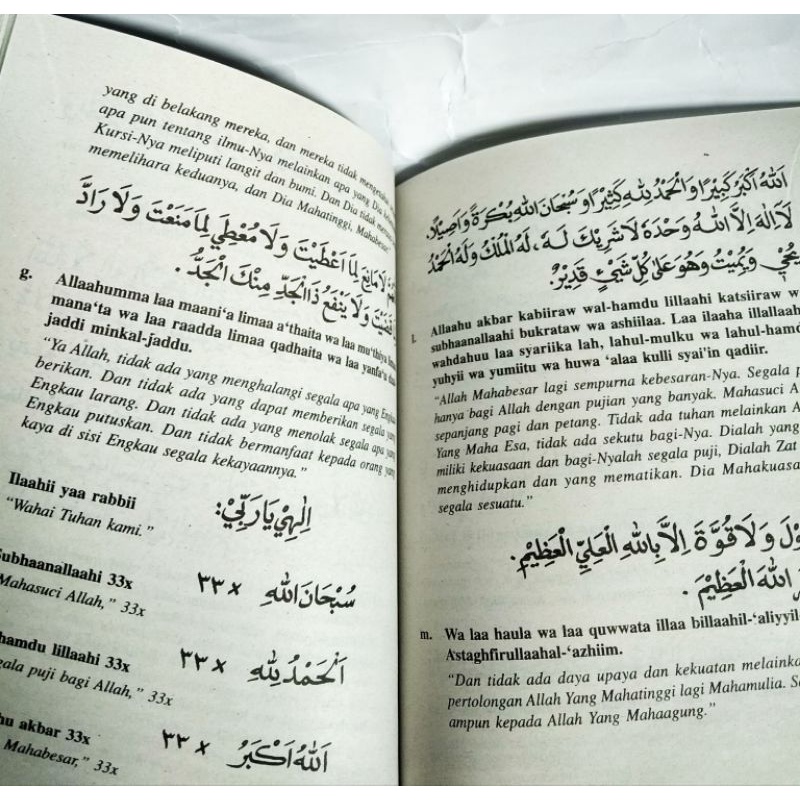 yang di belakang mereka, dan mereka tidak
apa pun tentang ilmu-Nya melainkan apa yang Dia
Kursi-Nya meliputi langit dan bumi. Dan Dia tidak
memelihara keduanya, dan Dia Mahatinggi, Mahabesar."
لَا مَانِعَ لِمَا اَعْطَيْتَ وَلَا مُعْطِيَ لِمَا مَنَعْتَ وَلَا رَادَّ
قَضَيْتَ وَلَا يَنْفَعُ ذَا الْجَدِّ مِنْكَ الْجَدُّ.
g. Allaahumma laa maani'a limaa a'thaita wa laa mu'thiya
mana'ta wa laa raadda limaa qadhaita wa laa yanfa'u
jaddi minkal-jaddu.
"Ya Allah, tidak ada yang menghalangi segala apa yang
berikan. Dan tidak ada yang dapat memberikan segala
Engkau larang. Dan tidak ada yang menolak segala apa yang
Engkau putuskan. Dan tidak bermanfaat kepada orang yang
kaya di sisi Engkau segala kekayaannya."
اِلٰهِيْ يَارَبِّيْ:
Ilaahii yaa rabbii
"Wahai Tuhan kami."
سُبْحَانَ اللهِ × ٣٣
Subhaanallaahi 33x
Mahasuci Allah," 33x
اَلْحَمْدُ لِلّٰهِ × ٣٣
hamdu lillaahi 33x
puji bagi Allah," 33x
اَللهُ اَكْبَرُ × ٣٣
akbar 33x
Mahabesar," 33x
اَللهُ اَكْبَرُ كَبِيْرًا وَالْحَمْدُ لِلّٰهِ كَثِيْرًا وَسُبْحَانَ اللهِ بُكْرَةً وَاَصِيْلًا.
لَا اِلٰهَ اِلَّا اللهُ وَحْدَهُ لَا شَرِيْكَ لَهُ، لَهُ الْمُلْكُ وَلَهُ الْحَمْدُ
وَيُمِيْتُ وَهُوَ عَلَى كُلِّ شَيْءٍ قَدِيْرٌ.
l. Allaahu akbar kabiiraw wal-hamdu lillaahi katsiiraw
subhaanallaahi bukrataw wa ashiilaa. Laa ilaaha illallaah
wahdahuu laa syariika lah, lahul-mulku wa lahul-hamd
yuhyii wa yumiitu wa huwa 'alaa kulli syai'in qadiir.
"Allah Mahabesar lagi sempurna kebesaran-Nya. Segala
hanya bagi Allah dengan pujian yang banyak. Mahasuci
sepanjang pagi dan petang. Tidak ada tuhan melainkan
Yang Maha Esa, tidak ada sekutu bagi-Nya. Dialah yang
miliki kekuasaan dan bagi-Nyalah segala puji, Dialah Zat
menghidupkan dan yang mematikan. Dia Mahakuasa
segala sesuatu."
وَلَا قُوَّةَ اِلَّا بِاللهِ الْعَلِيِّ الْعَظِيْمِ.
اللهَ الْعَظِيْمَ.
m. Wa laa haula wa laa quwwata illaa billaahil-'aliyyil-
Astaghfirullaahal-'azhiim.
"Dan tidak ada daya upaya dan kekuatan melainkan
pertolongan Allah Yang Mahatinggi lagi Mahamulia.
ampun kepada Allah Yang Mahaagung."